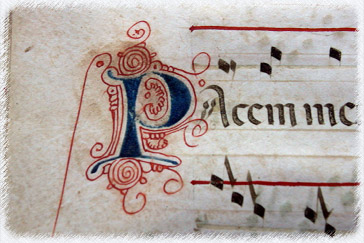 PAcem me